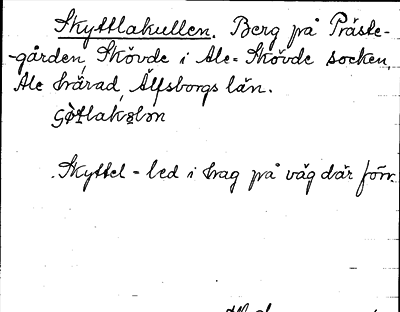 Skyttlakullen. Berg på Präste-
-gården, Skövde i Ale-Skövde socken,
Ale härad, Älfsborgs län.
Skyttel - led i hag på väg där förr.